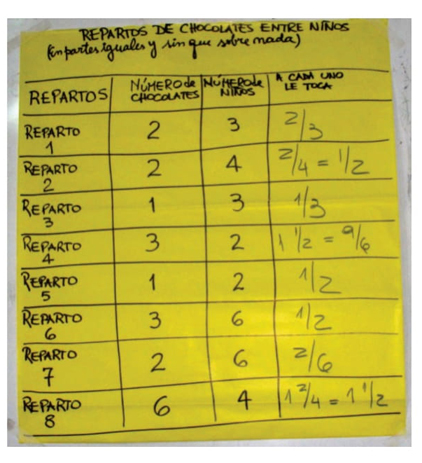 REPARTOS DE CHOCOLATES ENTRE NIÑOS
(en partes iguales y sin que sobre nada)
REPARTOS | NÚMERO de CHOCOLATES | NÚMERO de NIÑOS | A CADA UNO LE TOCA
REPARTO 1 | 2 | 3 | 2/3
REPARTO 2 | 2 | 4 | 2/4 = 1/2
REPARTO 3 | 1 | 3 | 1/3
REPARTO 4 | 3 | 2 | 1 1/2 = 9/6
REPARTO 5 | 1 | 2 | 1/2
REPARTO 6 | 3 | 6 | 1/2
REPARTO 7 | 2 | 6 | 2/6
REPARTO 8 | 6 | 4 | 1 2/4 = 1 1/2